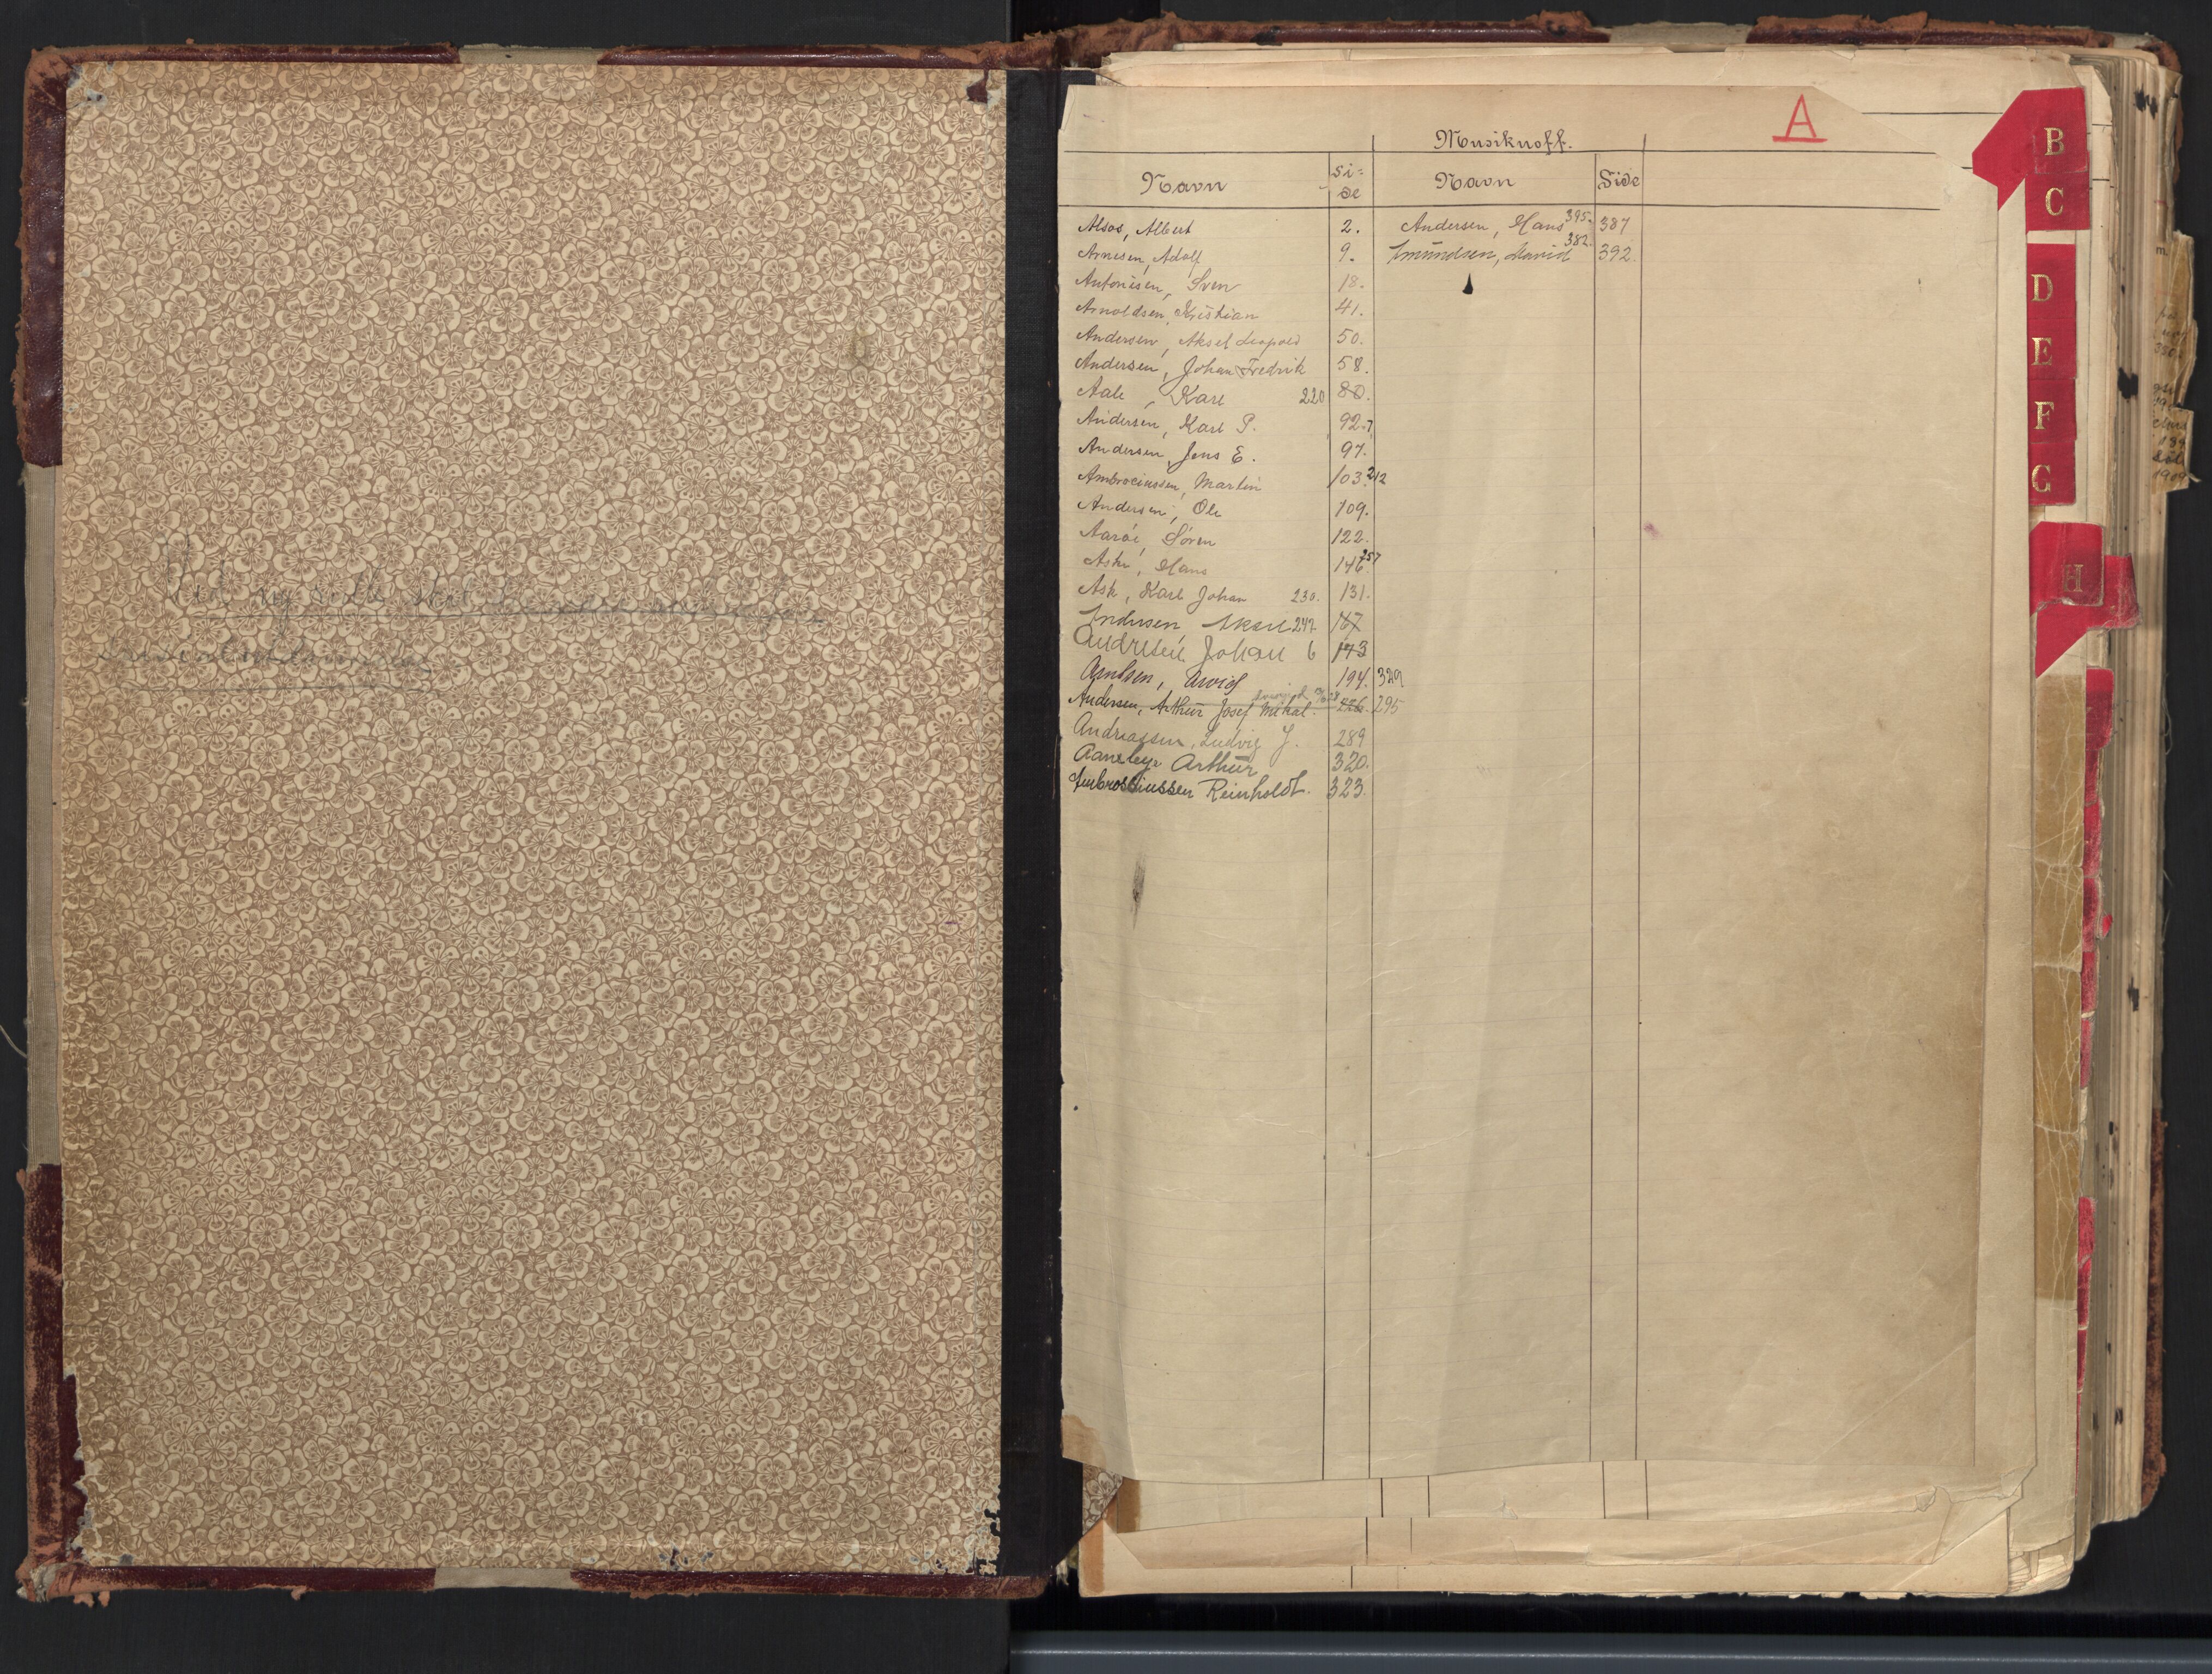 Musikuoff.
A
Navn
Si-
de
Navn
Side
Alsos, Albert 2.
Arnesen, Adolf 9.
Antonisen, Sven 18.
Arnoldsen, Kristian 41.
Andersen, Aksel Leopold 50.
Andersen, Johan Fredrik 58.
Aale, Karl 220 80.
Andersen, Karl P. 92.
Andersen, Jens E. 97.
Ambrociussen, Martin 103. 212
Andersen, Ole 109.
Aarøe, Søren 122.
Aske, Hans 146. 257
Ask, Karl Johan 230. 131.
Andersen 247 167
Andresen Johan 6 173
Arntsen, Arvid 194. 329
Andersen, Arthur Josef Mikal. 226. 295
Andreassen, Ludvig J. 289
Aanebye Arthur 320.
Ambrosiussen Reinholdt. 323.
Andersen, Hans 395. 387
Amundsen, David 382. 392.
Ved ny rulle skal
B
C
D
E
F
G
H